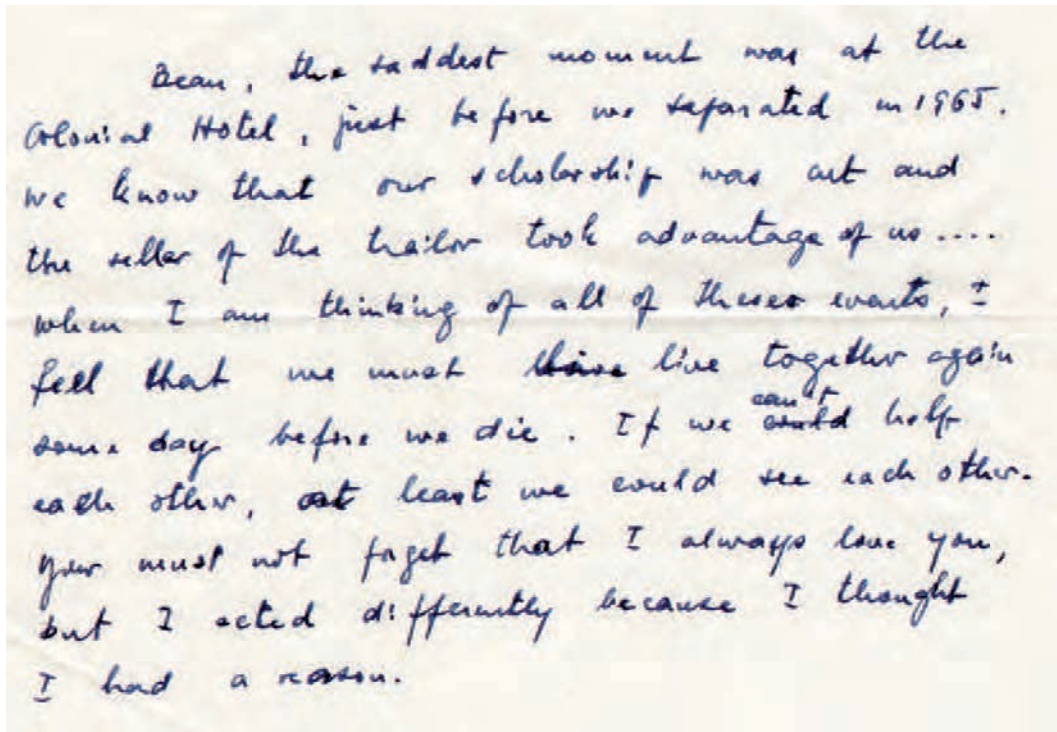 Dean, the saddest moment was at the
Colonial Hotel, just before we separated in 1965.
we know that our scholarship was cut and
the seller of the trailor took advantage of us....
when I am thinking of all of theses events, I
feel that we must live together again
some day before we die. If we can't help
each other, at least we could see each other.
your must not forget that I always love you,
but I acted differently because I thought
I had a reason.